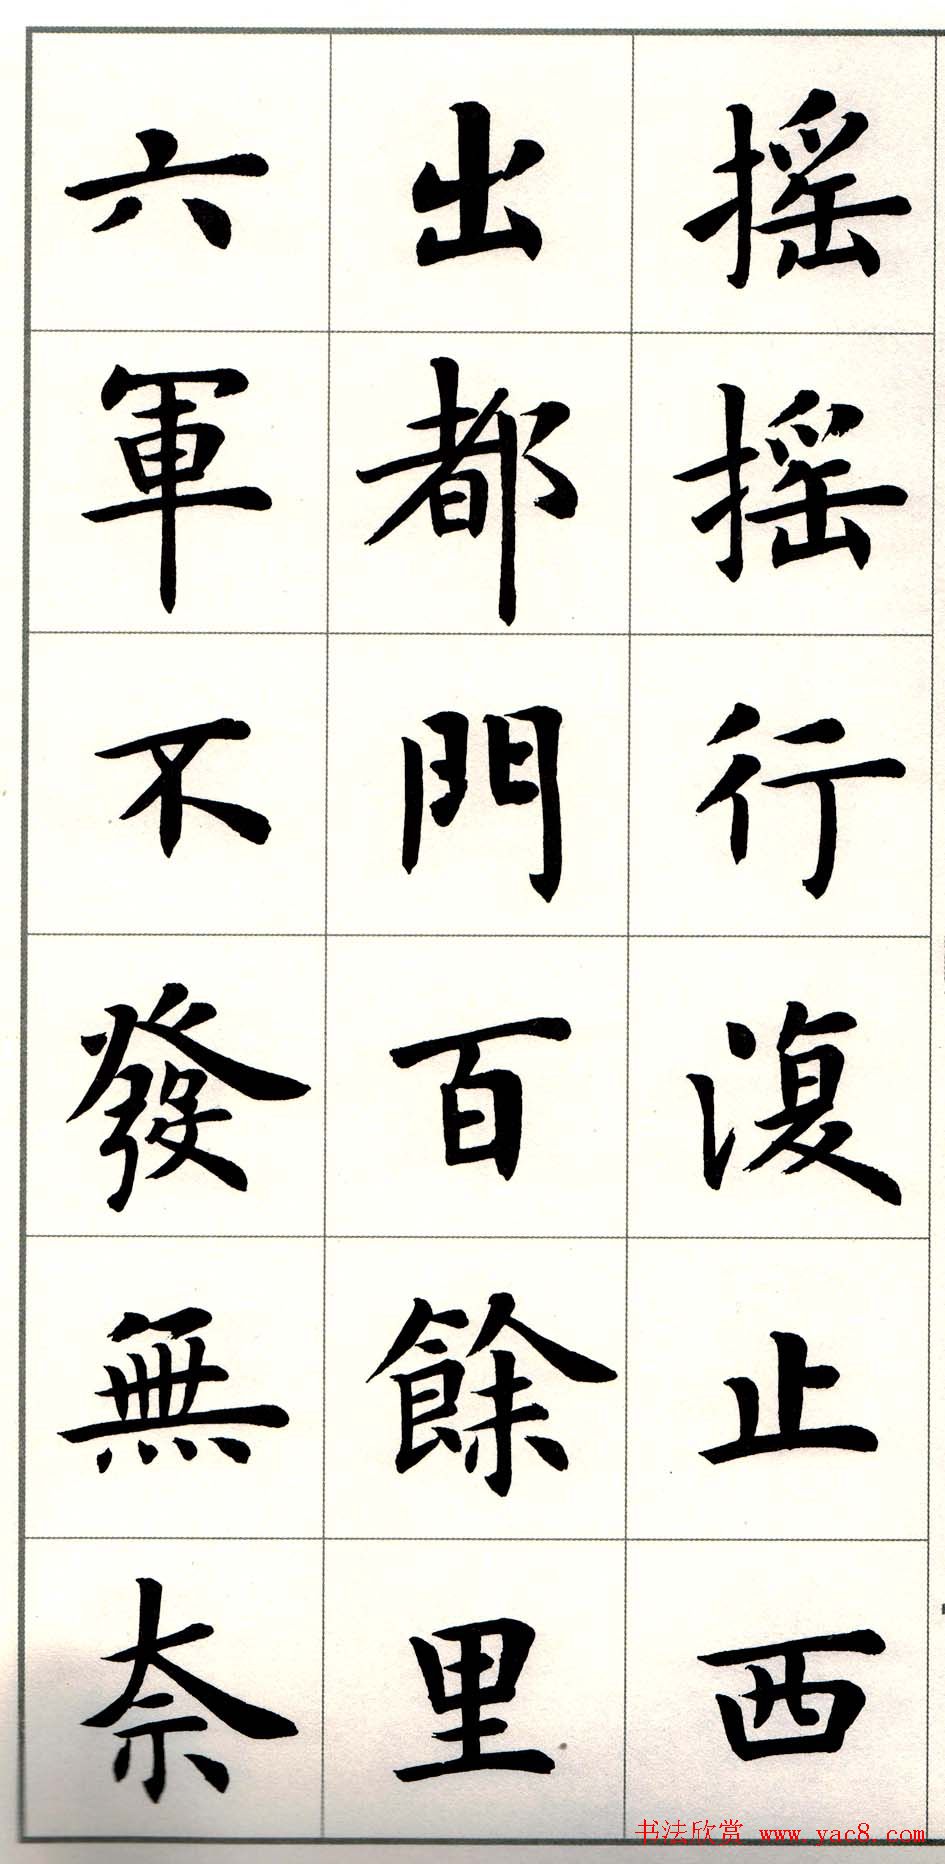 摇摇行復止西
出都門百餘里
六軍不發無奈
书法欣赏 www.yac8.com